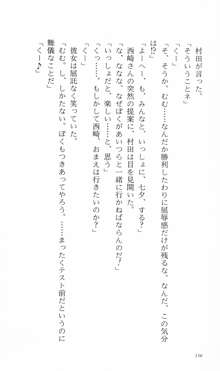 村田が言った。
「そういうことネ」
「くー」
「そ、そうか、むむ……なんだか勝利したわりに屈辱感だけが残るな、なんだ、この気分
は!?」
「よーへー、も、みんなと、いっしょに、七夕、する?」
西崎さんの突然の提案に、村田は目を見開いた。
「な、なな、なぜぼくがあいつらと一緒に行かねばならんのだ!」
「いっしょだと、楽しい……と、思う」
「くっ……、もしかして西崎、おまえは行きたいのか?」
「くー」
彼女は屈託なく笑っていた。
「むむ、し、しかたない、ぼくもつきあってやろう。……まったくテスト前だというのに
難儀なことだ」
「くー♪」
116